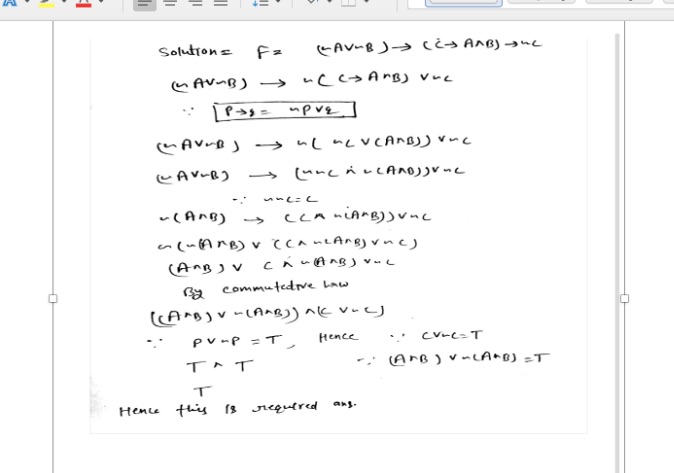 Solution = F = (~A∨~B) → (C → A∧B) → ~C
(~A∨~B) → ~(C → A∧B) ∨~C
∵ P→q = ~P∨q
(~A∨~B) → ~(~C∨(A∧B)) ∨~C
(~A∨~B) → (~~C ∧ ~(A∧B))∨~C
∵ ~~C = C
~(A∧B) → ((C∧ ~(A∧B))∨~C
~(~(A∧B) ∨ ((C∧~(A∧B)∨~C)
(A∧B) ∨ C∧~(A∧B) ∨~C
By commutedtive Law
((A∧B)∨~(A∧B)) ∧(C∨~C)
∵ P∨~P = T, Hence ∵ C∨~C=T
T ∧ T ∵ (A∧B) ∨~(A∧B) = T
T
Hence this is required ans.